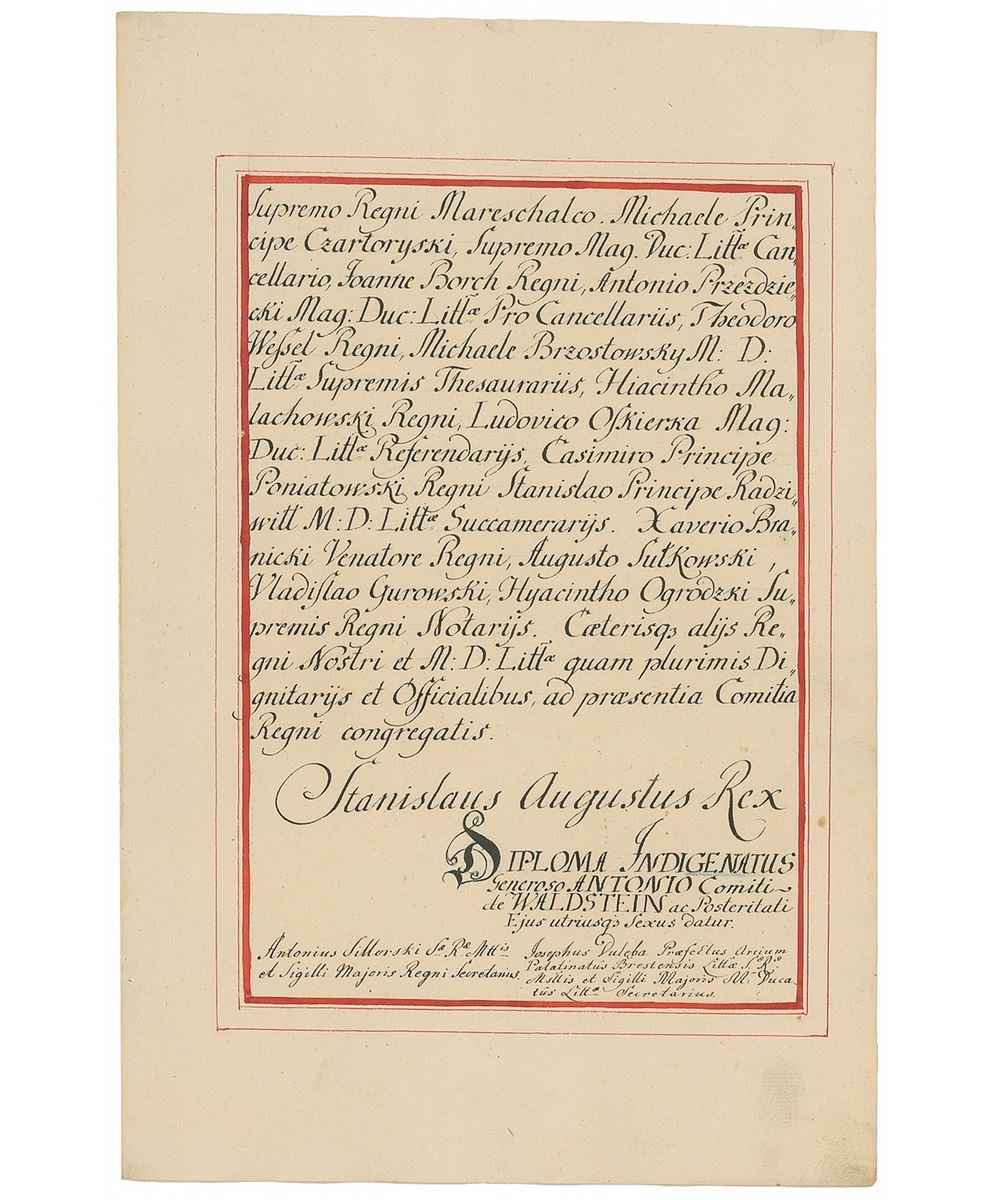 Supremo Regni Mareschalco. Michaele Prin„
cipe Czartoryski, Supremo Mag. Duc: Littæ Can„
cellario, Joanne Borch Regni, Antonio Przezdzie„
cki Mag: Duc: Littæ Pro Cancellariis, Theodoro
Weſsel Regni, Michaele Brzostowsky M: D:
Littæ Supremis Thesaurariis, Hiacintho Ma„
lachowski Regni, Ludovico Oſkierka Mag:
Duc: Littæ Referendarijs, Casimiro Principe
Poniatowski Regni Stanislao Principe Radzi„
witt M: D: Littæ Succamerarijs. Xaverio Bra„
nicki Venatore Regni, Augusto Sułkowski,
Vladiſlao Gurowski, Hyacintho Ogrodzki Su„
premis Regni Notarijs. Cæterisqꝫ alijs Re„
gni Nostri et M: D: Littæ quam plurimis Di„
gnitarijs et Officialibus, ad præsentia Comitia
Regni congregatis.
Stanislaus Augustus Rex
DIPLOMA INDIGENATUS
Generoso ANTONIO Comiti~
de WALDSTEIN ac Posteritati
Ejus utriusqꝫ Sexus datur.
Antonius Sikorski Sæ Ræ Mttis
et Sigilli Majoris Regni Secretarius.
Josephus Duleba Præfectus Arcium
Palatinatus Brestensis Littæ S. Ræ
Mttis et Sigilli Majoris M: Duca
tûs Littæ Secretarius.